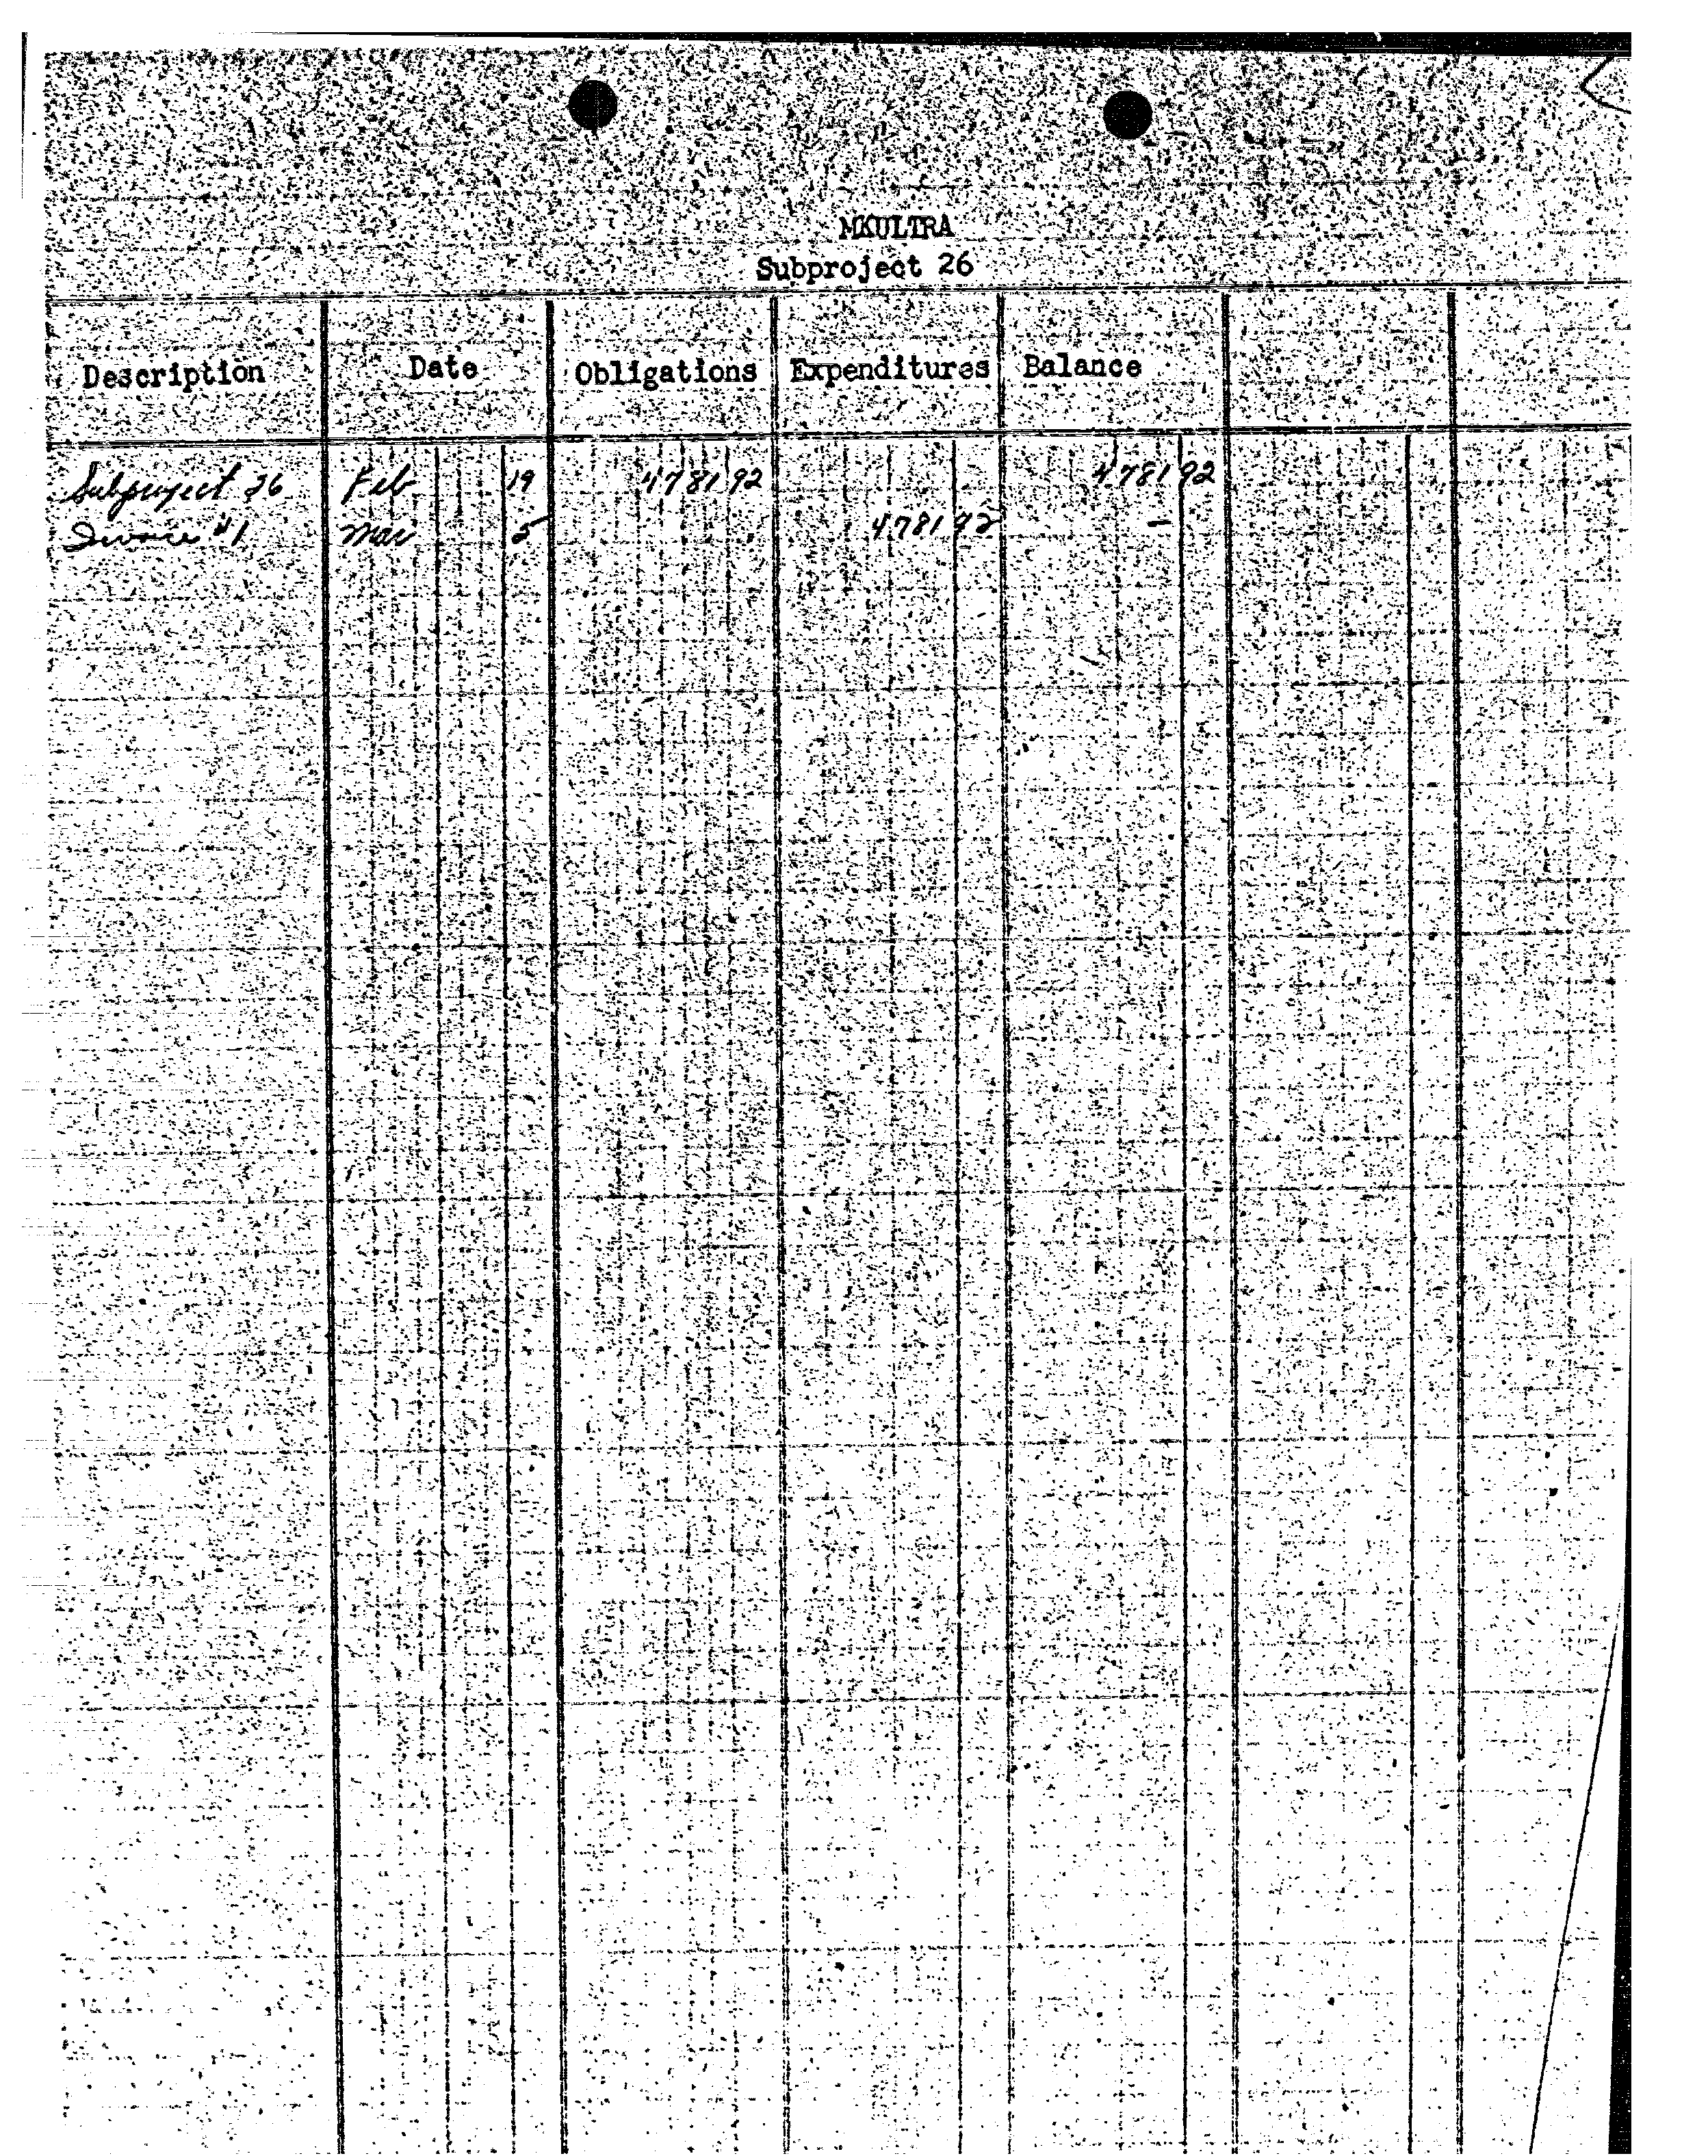 MKULTRA
Subproject 26
Description Date Obligations Expenditures Balance
Subproject 26 Feb 19 4781 92 4781 92
Invoice #1 Mar 5 4781 92 —